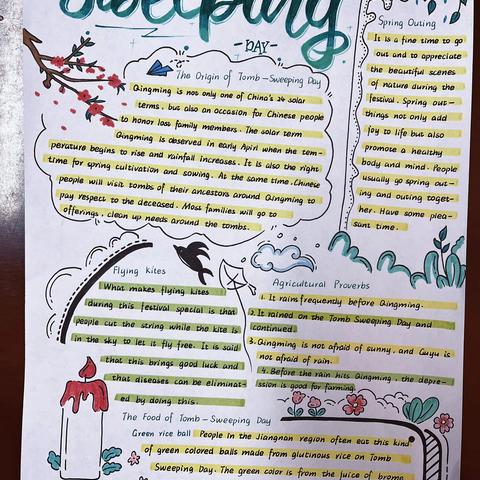 Sweeping
-DAY-
The Origin of Tomb-Sweeping Day
Qingming is not only one of China's 24 solar
terms, but also an occasion for Chinese people
to honor loss family members. The solar term
Qingming is observed in early Apirl when the tem-
perature begins to rise and rainfall increases. It is also the right
time for spring cultivation and sowing. At the same time, Chinese
people will visit tombs of their ancestors around Qingming to
pay respect to the deceased. Most families will go to
offerings, clean up needs around the tombs.
Spring Outing
It is a fine time to go
out and to appreciate
the beautiful scenes
of nature during the
festival. Spring out-
things not only add
joy to life but also
promote a healthy
body and mind. People
usually go spring out-
ing and outing toget-
her. Have some plea-
sant time.
Flying Kites
What makes flying kites
during this festival special is that
people cut the string while the kite is
in the sky to let it fly free. It is said
that this brings good luck and
that diseases can be eliminat-
ed by doing this.
Agricultural Proverbs
1. It rains frequently before Qingming.
2. It rained on the Tomb Sweeping Day and
continued.
3. Qingming is not afraid of sunny, and Guyu is
not afraid of rain.
4. Before the rain hits Qingming, the depre-
ssion is good for farming.
The Food of Tomb-Sweeping Day
Green rice ball People in the Jiangnan region often eat this kind
of green colored balls made from glutinous rice on Tomb
Sweeping Day. The green color is from the juice of brome